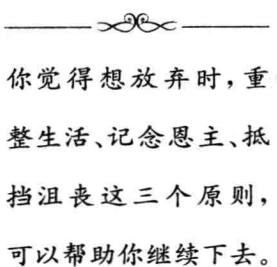 你觉得想放弃时，重
整生活、记念恩主、抵
挡沮丧这三个原则，
可以帮助你继续下去。